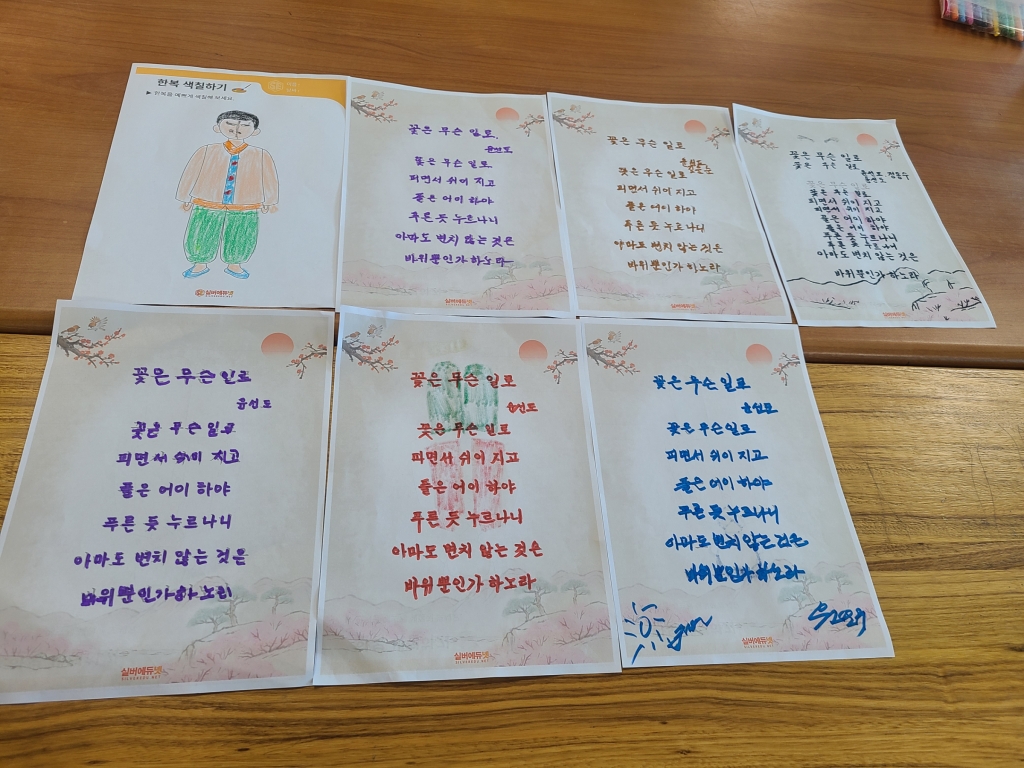 한복 색칠하기
▶ 한복을 예쁘게 색칠해 보세요.
실버에듀넷
꽃은 무슨 일로
윤선도
꽃은 무슨 일로
피면서 쉬이 지고
풀은 어이 하야
푸른 듯 누르나니
아마도 변치 않는 것은
바위뿐인가 하노라
실버에듀넷
꽃은 무슨 일로
윤선도
꽃은 무슨 일로
피면서 쉬이 지고
풀은 어이 하야
푸른 듯 누르나니
아마도 변치 않는 것은
바위뿐인가 하노라
실버에듀넷
꽃은 무슨 일로
꽃은 무슨 일로
윤선도
윤선도
꽃은 무슨 일로
꽃은 무슨 일로
피면서 쉬이 지고
피면서 쉬이 지고
풀은 어이 하야
풀은 어이 하야
푸른 듯 누르나니
푸른 듯 누르나니
아마도 변치 않는 것은
바위뿐인가 하노라
실버에듀넷
꽃은 무슨 인로
윤선도
꽃은 무슨 일로
피면서 쉬이 지고
풀은 어이 하야
푸른 듯 누르나니
아마도 변치 않는 것은
바위뿐인가 하노라
실버에듀넷
SILVEREDU.NET
꽃은 무슨 일로
윤선도
꽃은 무슨 일로
파면서 쉬이 지고
풀은 어이 하야
푸른 듯 누르나니
아마도 변치 않는 것은
바위뿐인가 하노라
실버에듀넷
SILVEREDU.NET
꽃은 무슨 일로
윤선도
꽃은 무슨 일로
피면서 쉬이 지고
풀은 어이 하야
푸른 듯 누르나니
아마도 변치 않는 것은
바위뿐인가 하노라
실버에듀넷